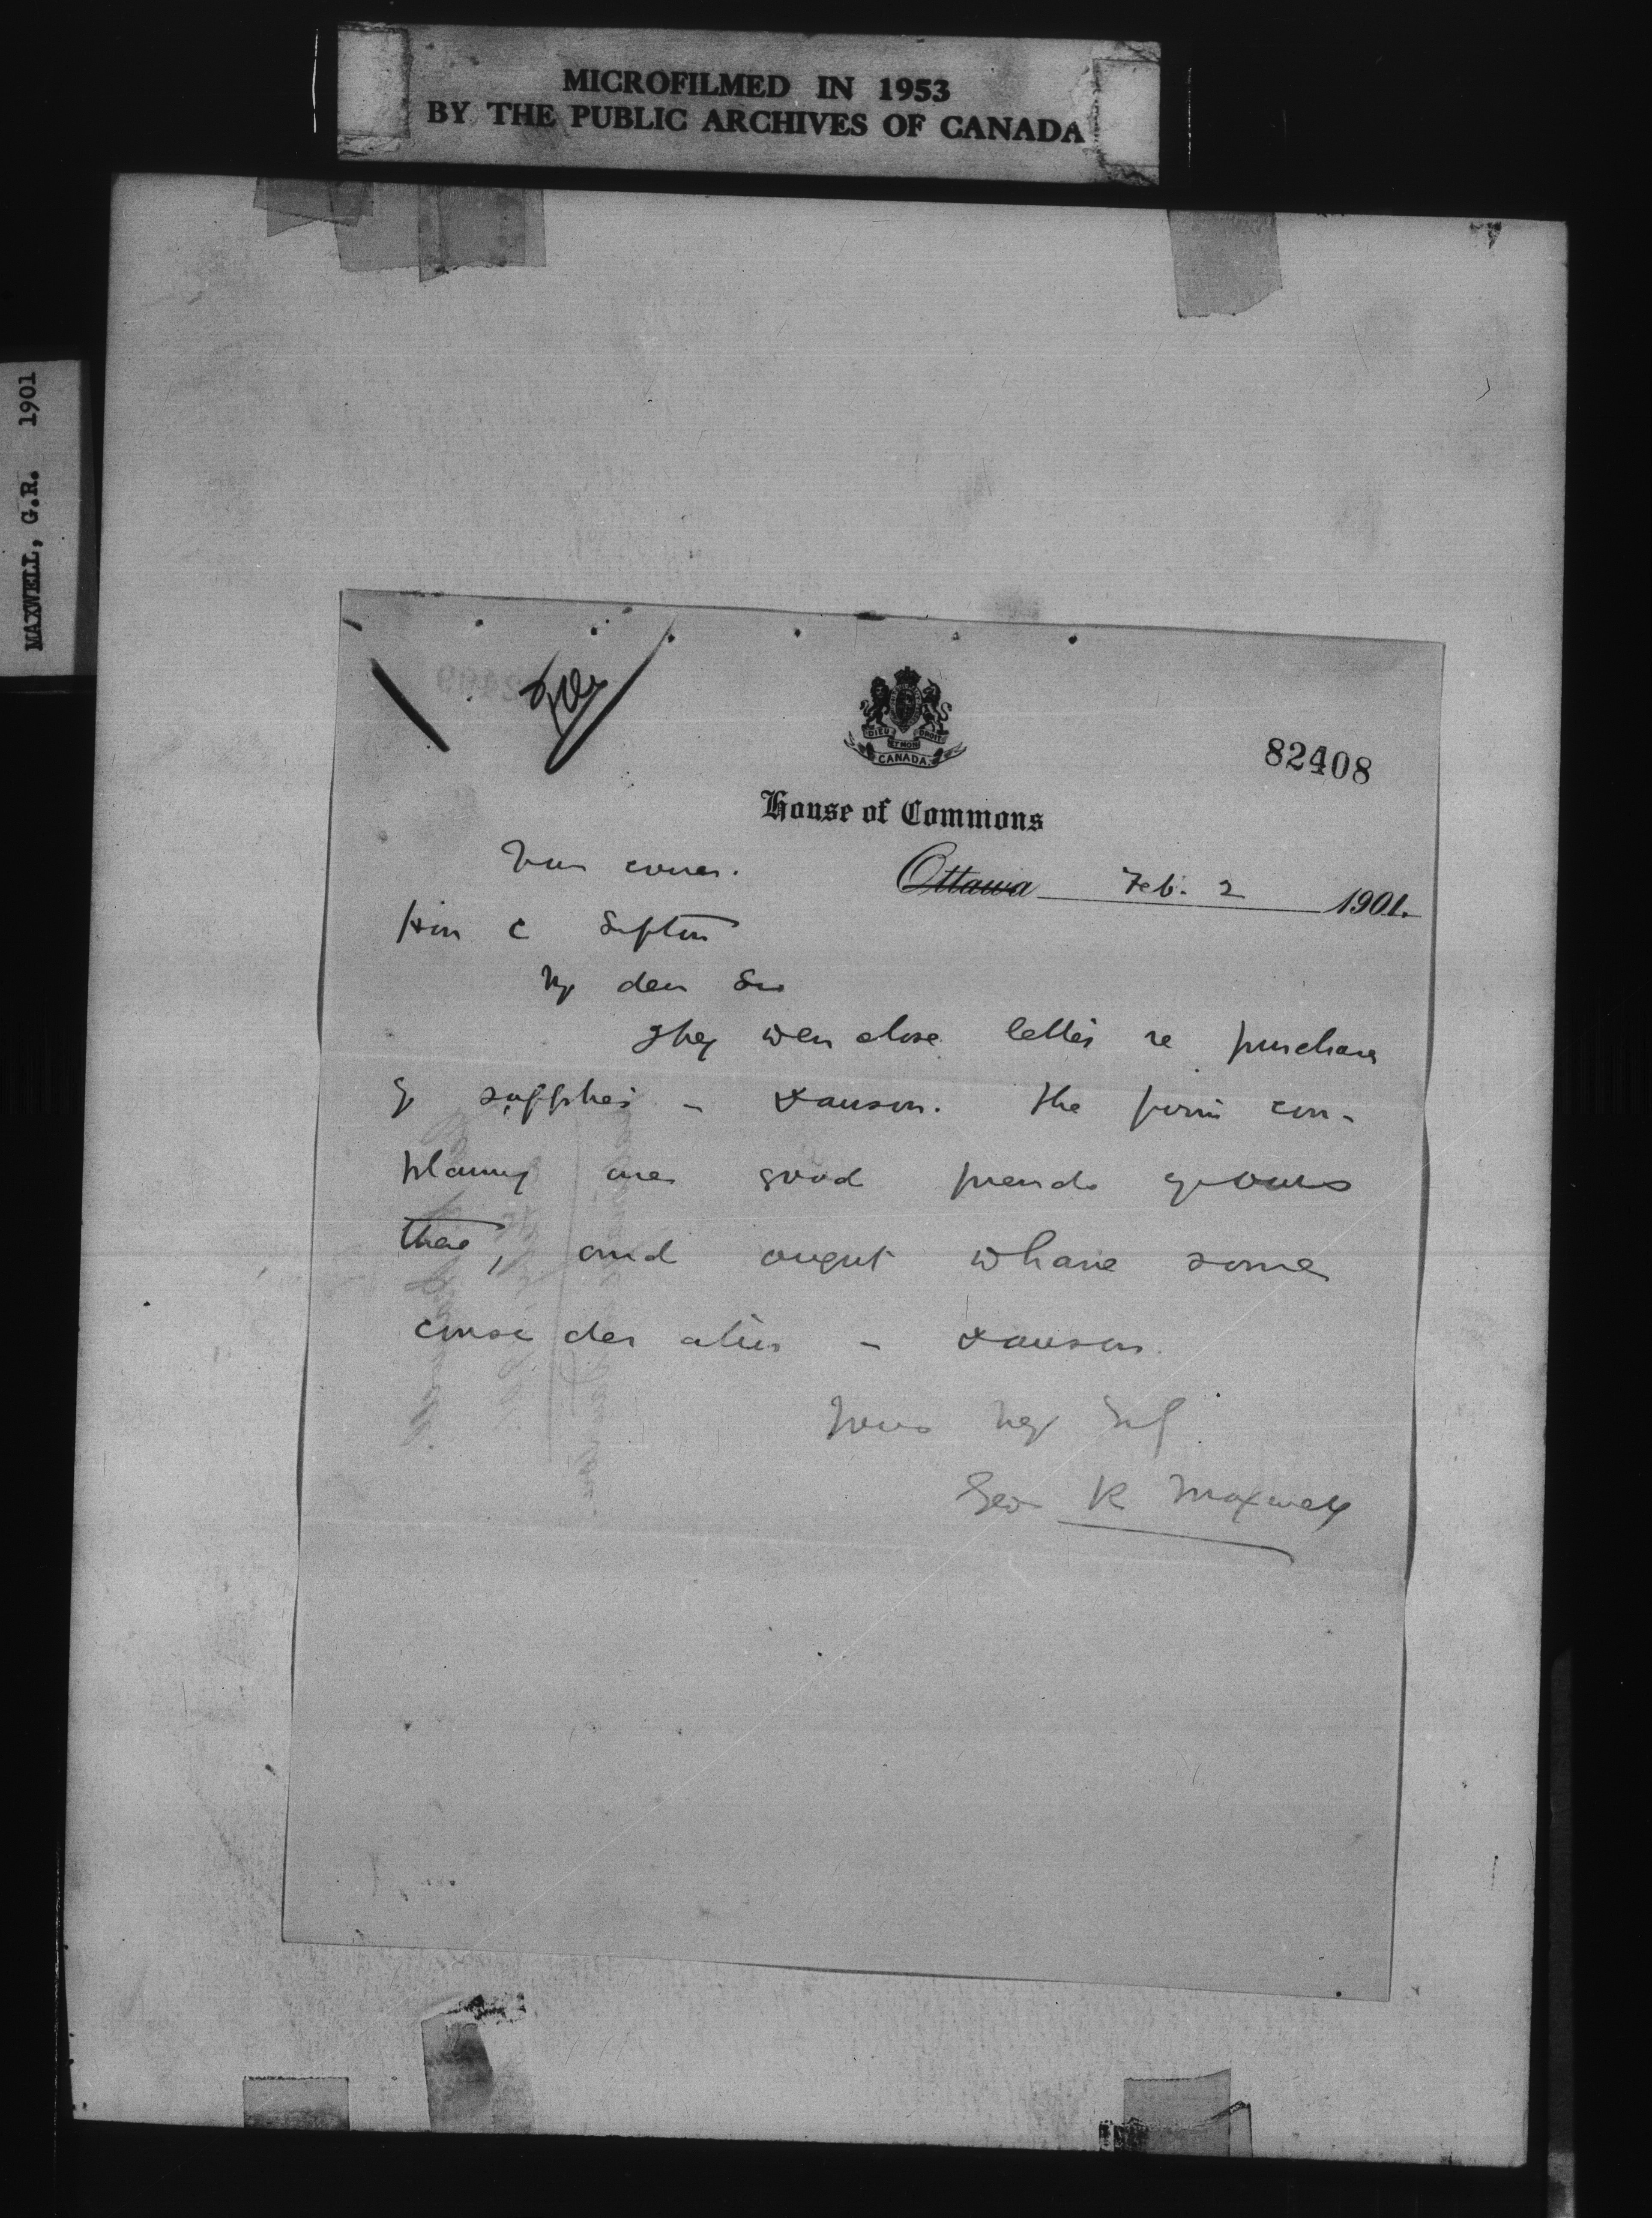 MICROFILMED IN 1953
BY THE PUBLIC ARCHIVES OF CANADA
MAXWELL, G.R. 1901
DIEU ET MON DROIT
CANADA
82408
House of Commons
Vancouver.
Ottawa Feb. 2 1901.
Hon C Sifton
My dear Sir
I beg to enclose letter re purchase
of supplies - Dawson. The firm com-
plaining are good friends of ours
there, and ought to have some
consideration - Dawson.
Yours very trly
Geo R Maxwell